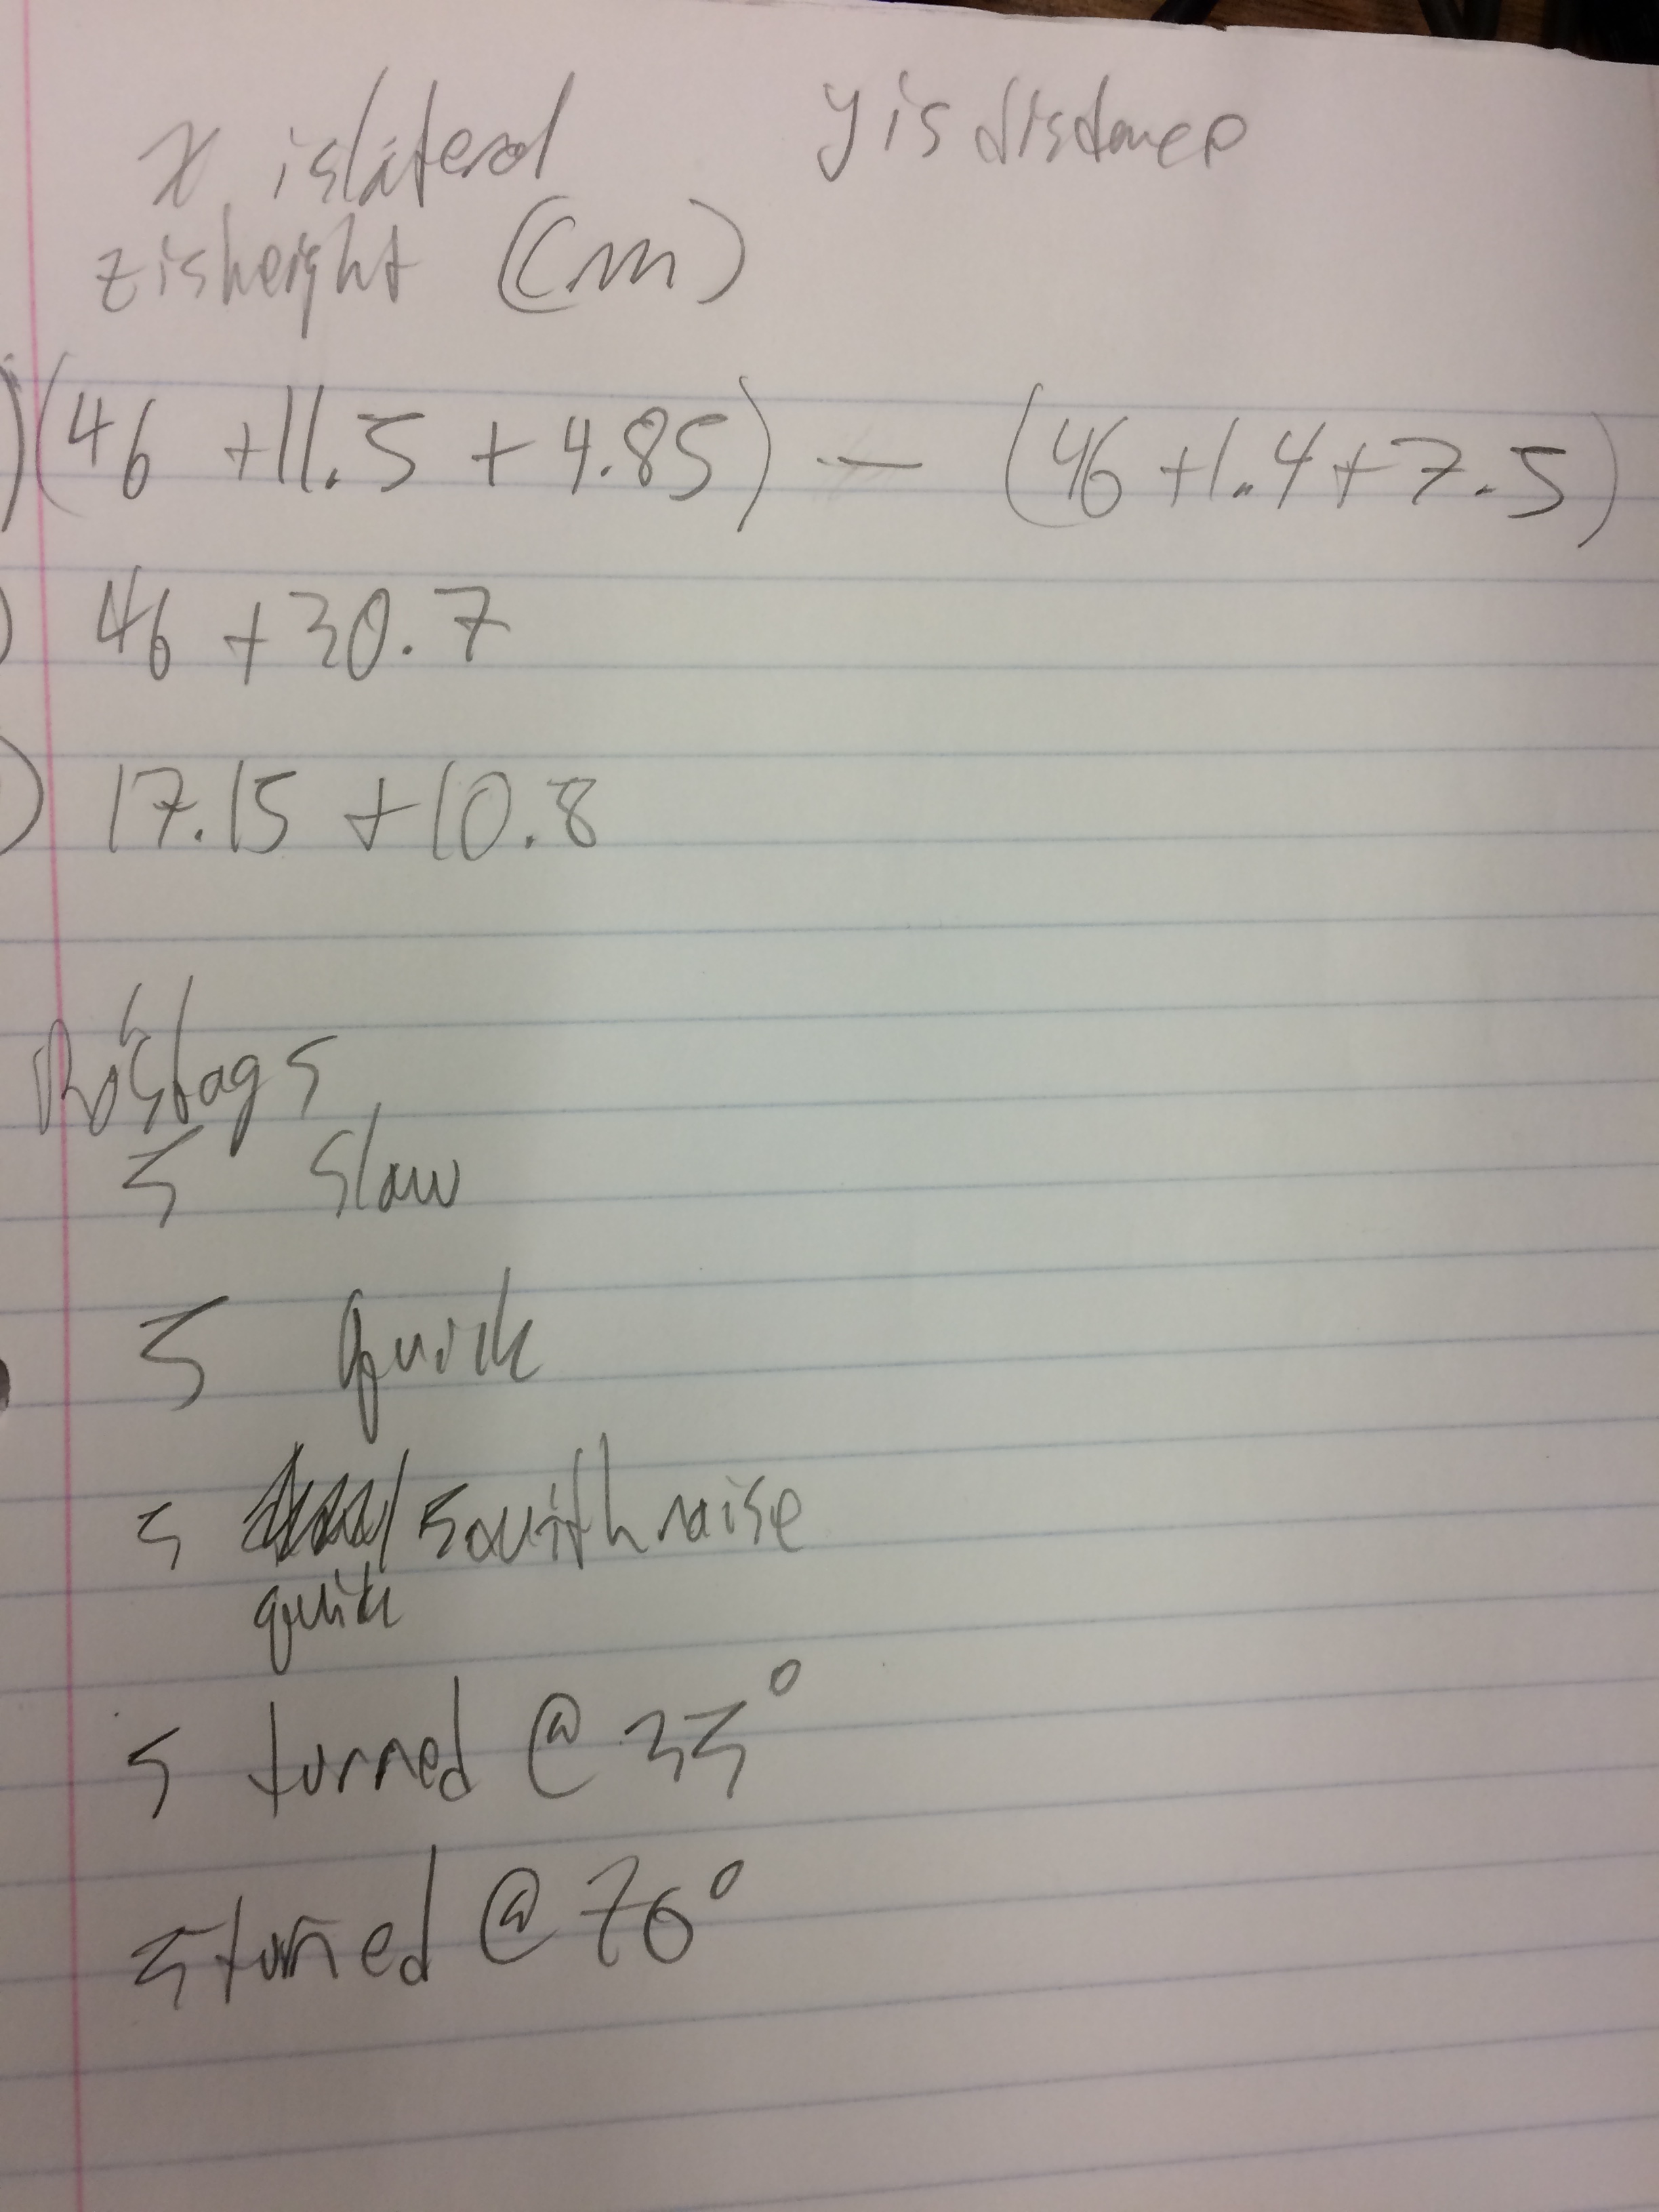 x is lateral y is distance
z is height (cm)
)(46 + 11.5 + 4.85) — (46 + 1.4 + 7.5)
) 46 + 30.7
) 17.15 + 10.8
5 slow
5 quick
5 / 5 with raise
quick
5 turned @ 35°
5 turned @ 76°